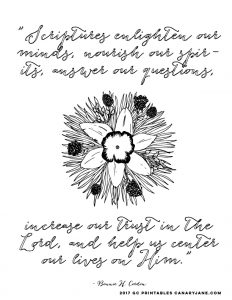 "Scriptures enlighten our
minds, nourish our spir-
its, answer our questions,
increase our trust in the
Lord, and help us center
our lives on Him."
- Bonnie H. Cordon
2017 GC PRINTABLES CANARYJANE.COM